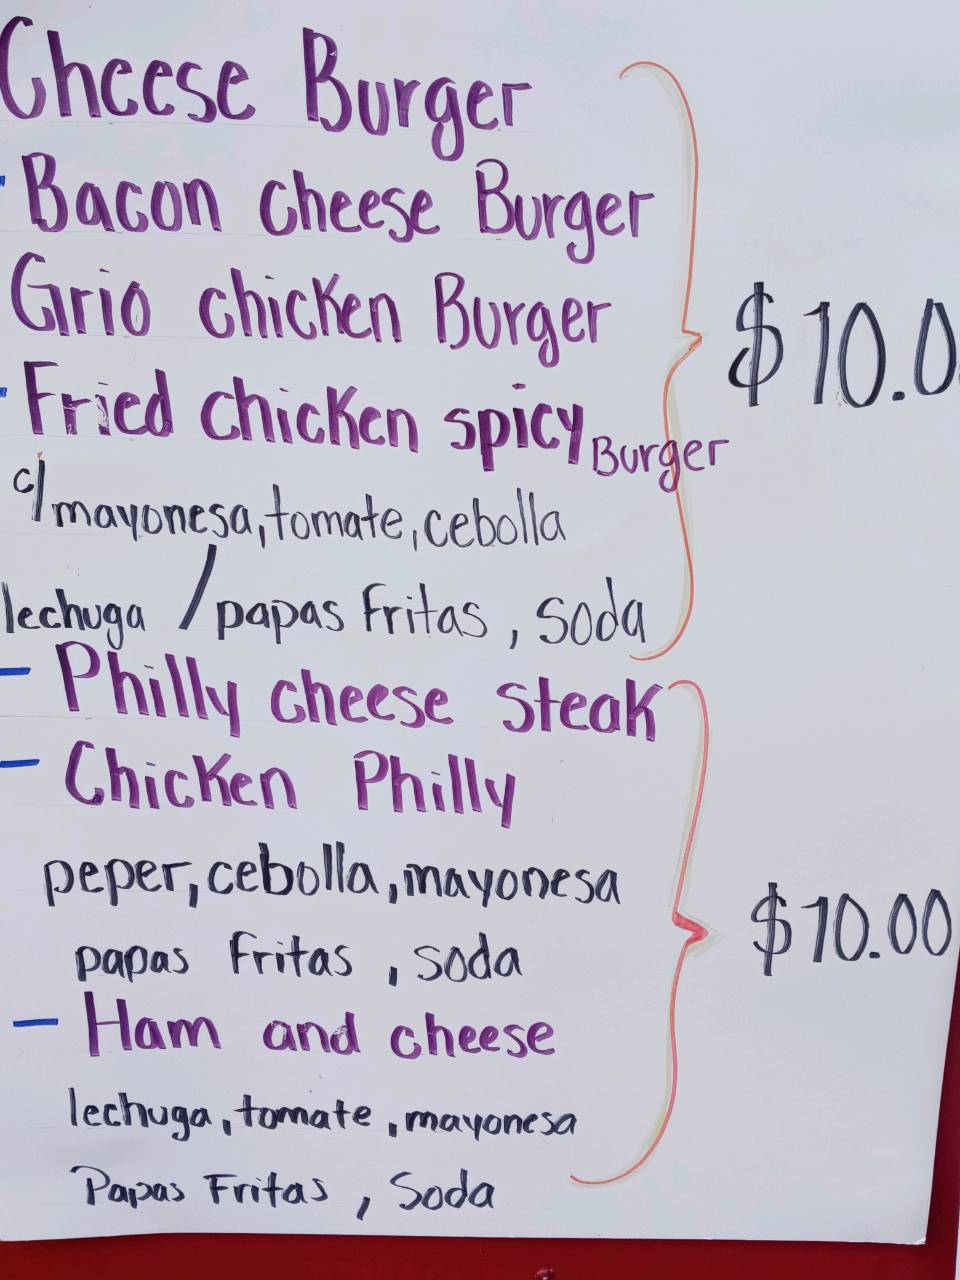 Cheese Burger
- Bacon cheese Burger
Grio chicken Burger
- Fried chicken spicy Burger
c/mayonesa, tomate, cebolla
lechuga / papas fritas, soda
$10.0
- Philly cheese steak
- Chicken Philly
peper, cebolla, mayonesa
papas fritas, soda
- Ham and cheese
lechuga, tomate, mayonesa
Papas Fritas, Soda
$10.00